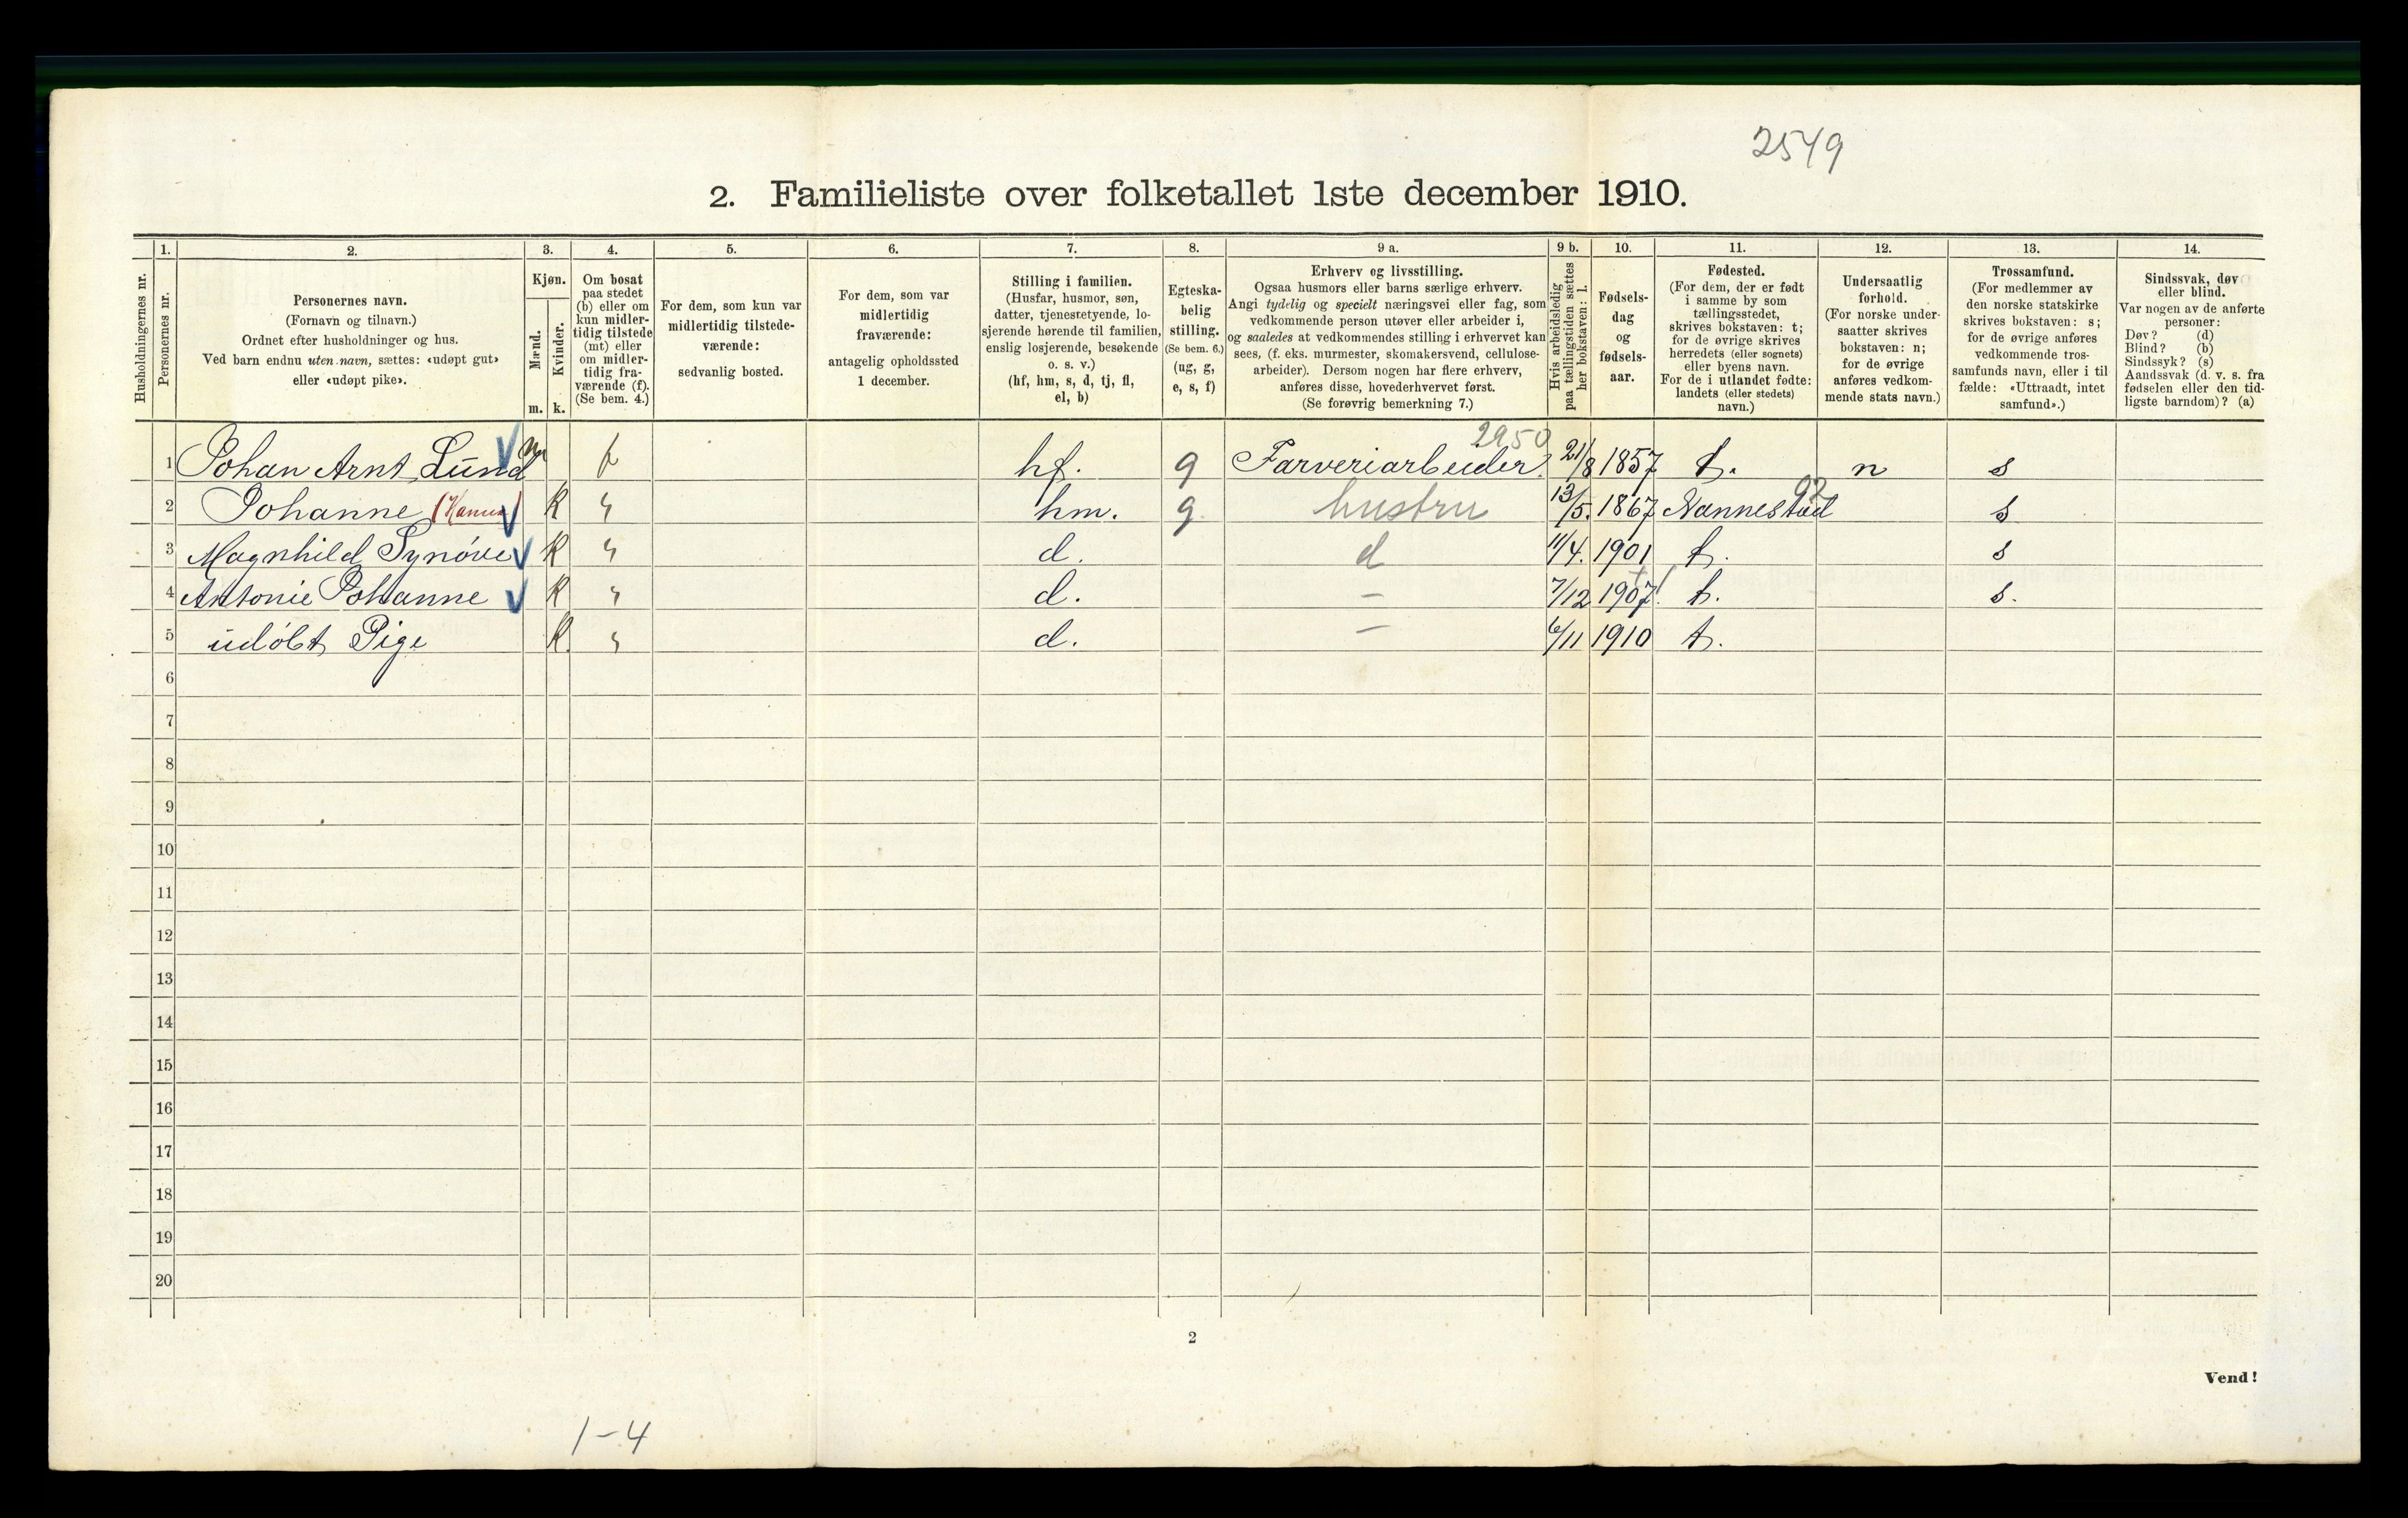 2549
2. Familieliste over folketallet 1ste december 1910.
Husholdningernes nr.
1.
Personernes nr.
2.
Personernes navn.
(Fornavn og tilnavn.)
Ordnet efter husholdninger og hus.
Ved barn endnu uten navn, sættes: «udøpt gut»
eller «udøpt pike».
3.
Kjøn.
Mænd.
Kvinder.
m. k.
4.
Om bosat
paa stedet
(b) eller om
kun midler-
tidig tilstede
(mt) eller
om midler-
tidig fra-
værende (f).
(Se bem. 4.)
5.
For dem, som kun var
midlertidig tilstede-
værende:
sedvanlig bosted.
6.
For dem, som var
midlertidig
fraværende:
antagelig opholdssted
1 december.
7.
Stilling i familien.
(Husfar, husmor, søn,
datter, tjenestetyende, lo-
sjerende hørende til familien,
enslig losjerende, besøkende
o. s. v.)
(hf, hm, s, d, tj, fl,
el, b)
8.
Egteska-
belig
stilling.
(Se bem. 6.)
(ug, g,
e, s, f)
9 a.
Erhverv og livsstilling.
Ogsaa husmors eller barns særlige erhverv.
Angi tydelig og specielt næringsvei eller fag, som
vedkommende person utøver eller arbeider i,
og saaledes at vedkommendes stilling i erhvervet kan
sees, (f. eks. murmester, skomakersvend, cellulose-
arbeider). Dersom nogen har flere erhverv,
anføres disse, hovederhvervet først.
(Se forøvrig bemerkning 7.)
9 b.
Hvis arbeidsledig
paa tællingstiden sættes
her bokstaven: l.
10.
Fødsels-
dag
og
fødsels-
aar.
11.
Fødested.
(For dem, der er født
i samme by som
tællingsstedet,
skrives bokstaven: t;
for de øvrige skrives
herredets (eller sognets)
eller byens navn.
For de i utlandet fødte:
landets (eller stedets)
navn.)
12.
Undersaatlig
forhold.
(For norske under-
saatter skrives
bokstaven: n;
for de øvrige
anføres vedkom-
mende stats navn.)
13.
Trossamfund.
(For medlemmer av
den norske statskirke
skrives bokstaven: s;
for de øvrige anføres
vedkommende tros-
samfunds navn, eller i til
fælde: «Uttraadt, intet
samfund».)
14.
Sindssvak, døv
eller blind.
Var nogen av de anførte
personer:
Døv? (d)
Blind? (b)
Sindssyk? (s)
Aandssvak (d. v. s. fra
fødselen eller den tid-
ligste barndom)? (a)
2950
1 Johan Arnt Lund m hf. g Farveriarbeider 21/8 1857 t. n s
92
2 Johanne k " hm. g. hustru 13/5. 1867 Nannestad s
3 Magnhild Synøve k " d. d 11/4. 1901 t. s
4 Antonie Johanne k " d. — 7/12 1907 t. s.
5 udøbt Pige k " d. — 6/11 1910 t.
6
7
8
9
10
11
12
13
14
15
16
17
18
19
20
2
Vend!
1-4